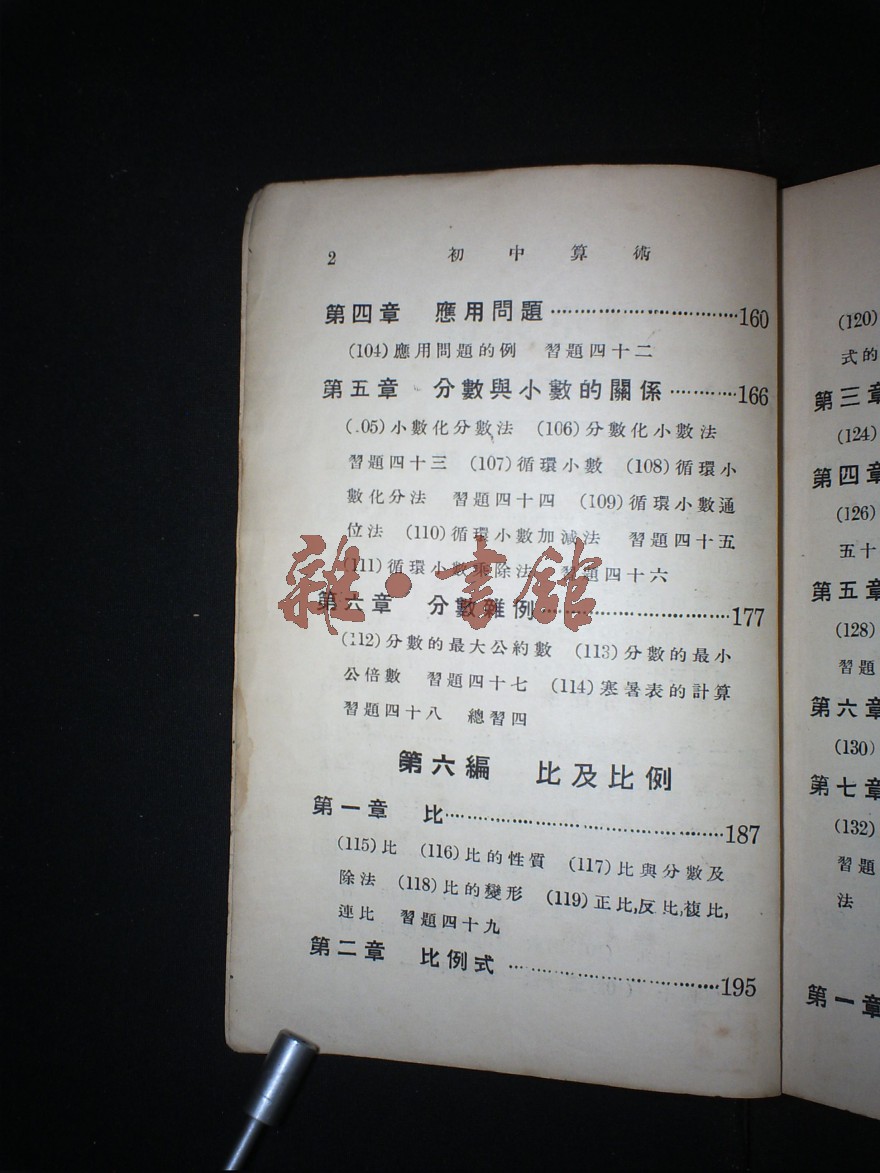 2 初中算術
第四章 應用問題……160
(104)應用問題的例 習題四十二
第五章 分數與小數的關係……166
(.05)小數化分數法 (106)分數化小數法
習題四十三 (107)循環小數 (108)循環小
數化分法 習題四十四 (109)循環小數通
位法 (110)循環小數加減法 習題四十五
(111)循環小數乘除法 習題四十六
雜·書館
第六章 分數雜例……177
(112)分數的最大公約數 (113)分數的最小
公倍數 習題四十七 (114)寒暑表的計算
習題四十八 總習四
第六編 比及比例
第一章 比……187
(115)比 (116)比的性質 (117)比與分數及
除法 (118)比的變形 (119)正比,反比,複比,
連比 習題四十九
第二章 比例式……195
(120)
式的
第三章
(124)
第四章
(126)
五十
第五章
(128)
習題
第六章
(130)
第七章
(132)
習題
法
第一章